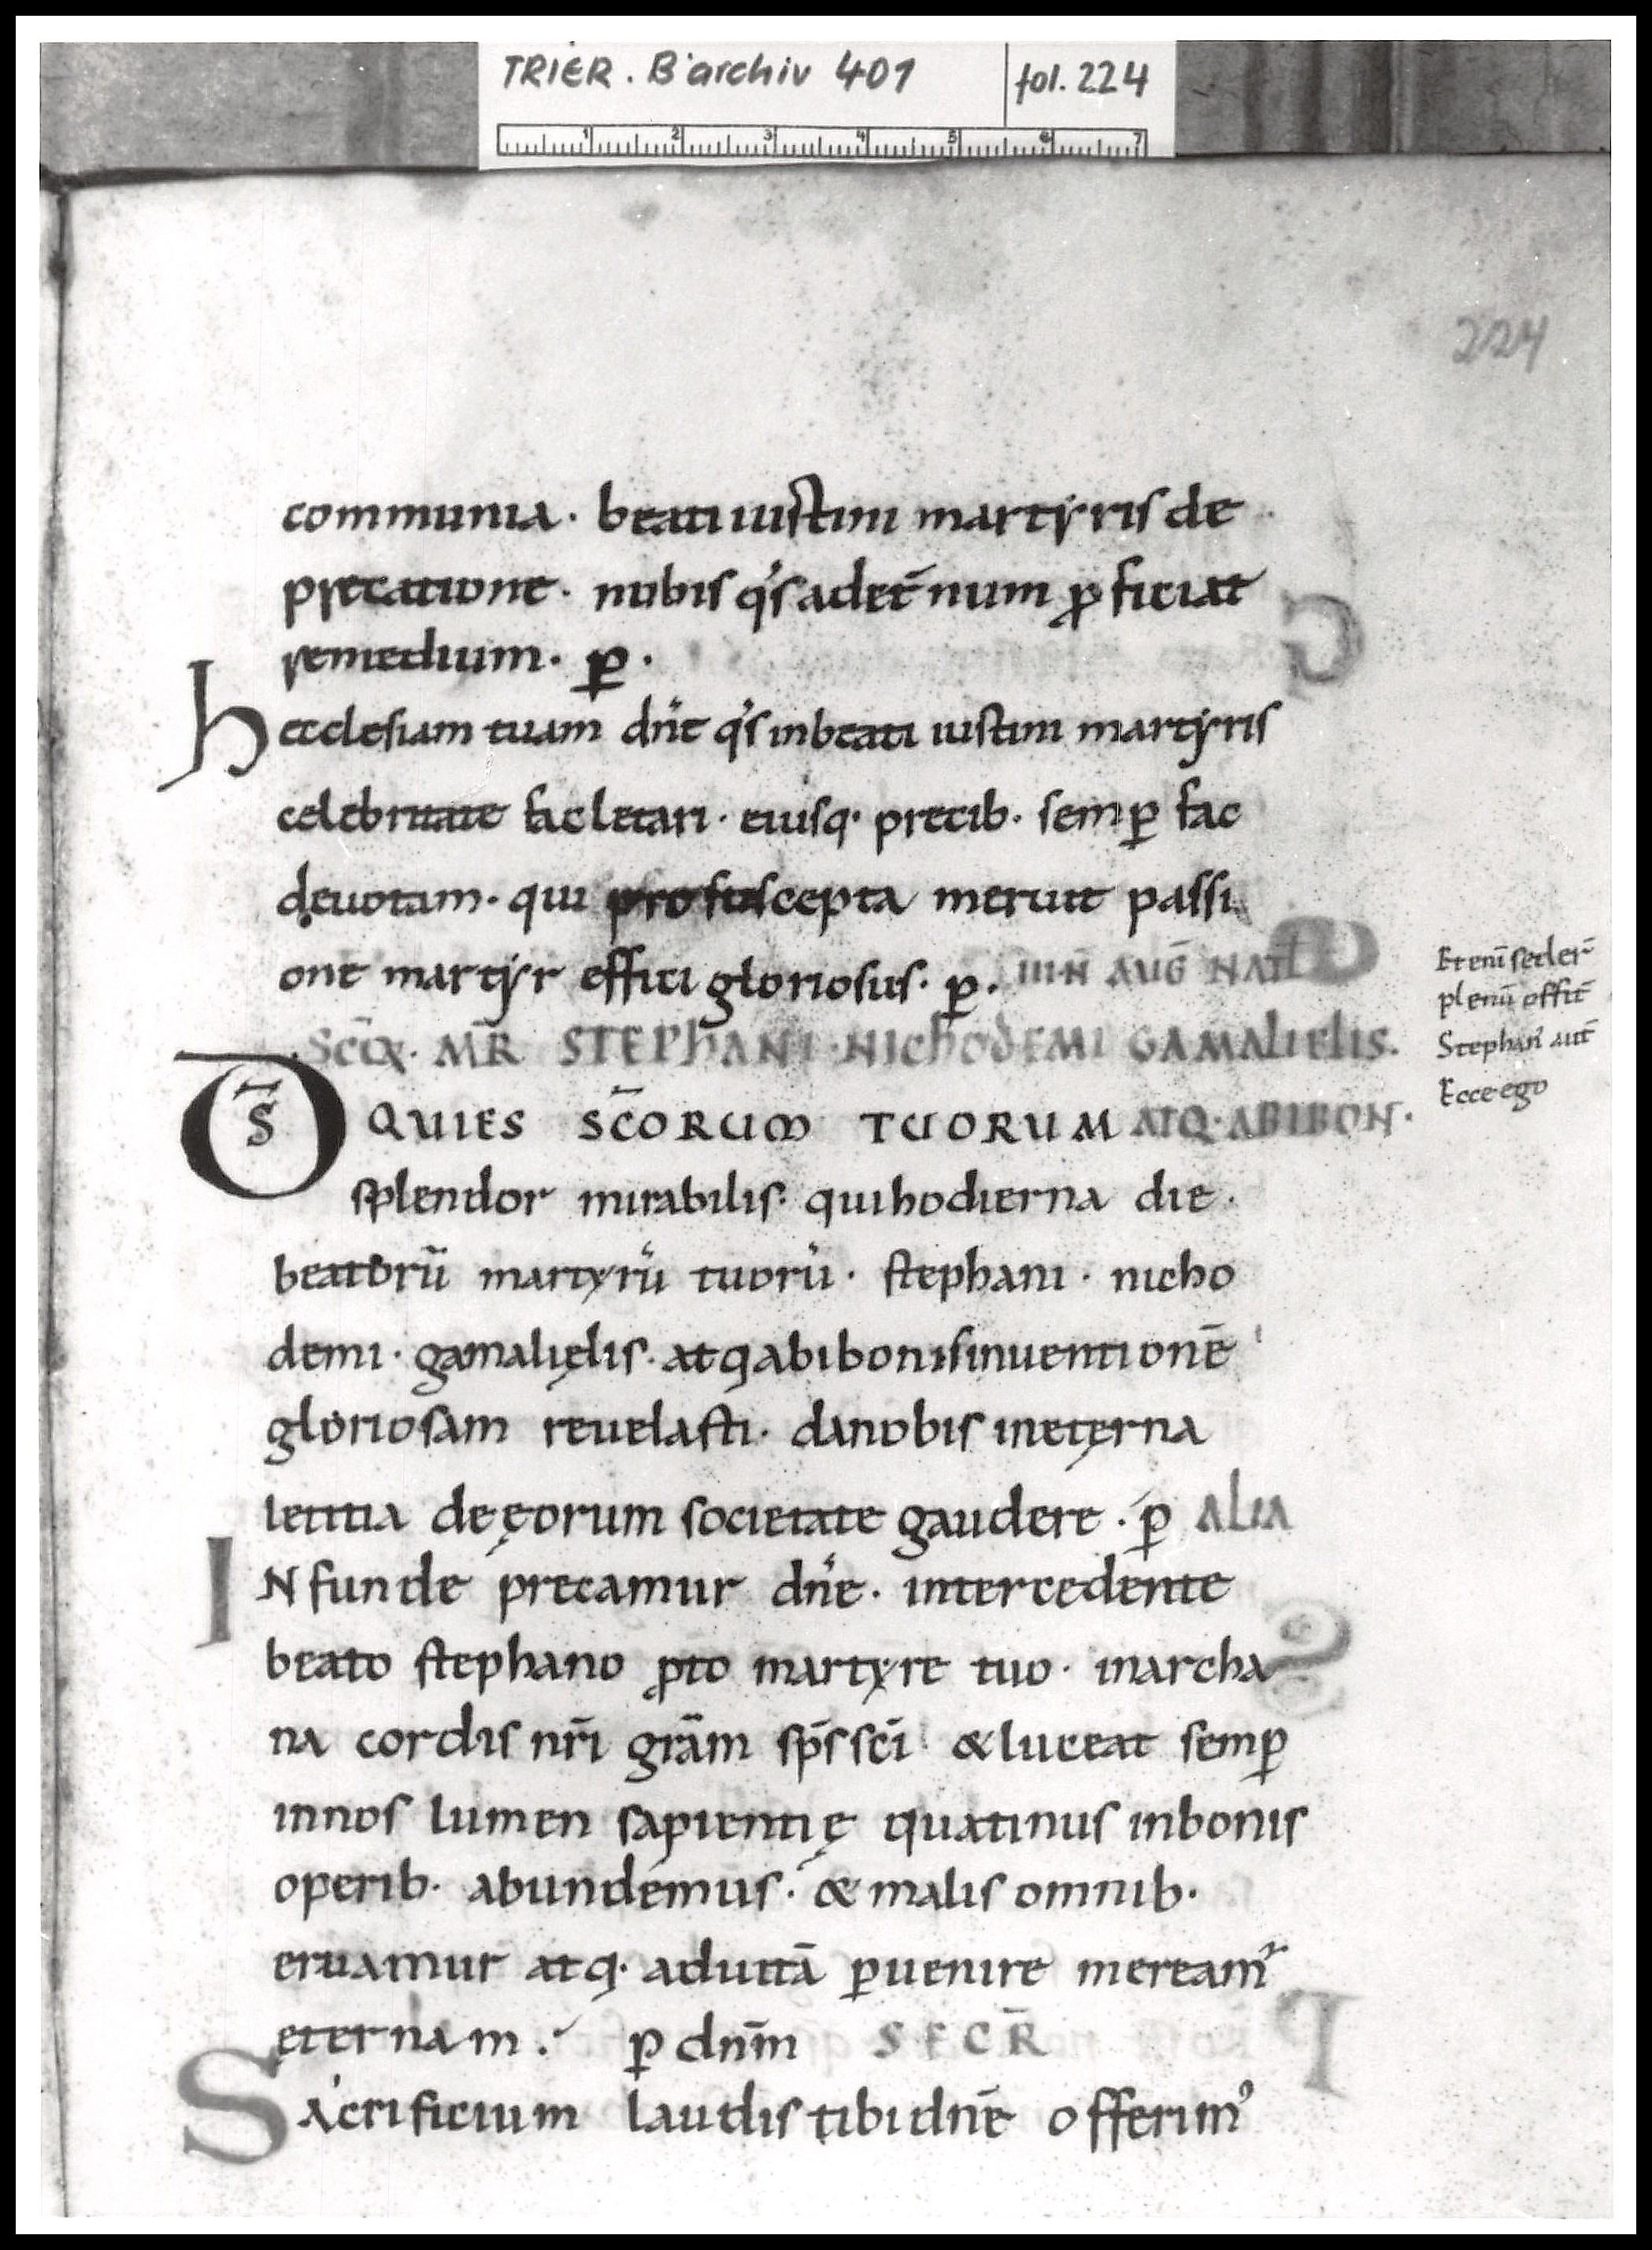 TRIER. B'archiv 401 fol. 224
1 2 3 4 5 6 7
224
communia · beati iustini martẏris de
precatione · nobis q's adet̄num ꝓficiat
remedium · p̲ ·
h ecclesiam tuam dn̄e q's inbeati iustini martẏris
celebritate fac letari · eiusq· precib· semꝑ fac
deuotam · qui pro suscepta meruit passi
one martẏr effici gloriosus · ꝑ · III·N̄ AUḠ NAT̄
SC̄OꝜ· MR̄ STEPhANI · NIChODEMI GAMALIELIS·
D̄S QUIES SC̄ORUM TUORUM ATQ·ABIBON·
splendor mirabilis · qui hodierna die ·
beatorū martyrū tuorū · stephani · nicho
demi · gamalięlis · atq abibonis inuentionē
gloriosam reuelasti · da nobis inetęrna
letitia de ęorum societate gaudere · ꝑ ALIA
INfunde precamur dn̄e · intercedente
beato stephano ꝓto martyre tuo · inarcha
na cordis nr̄i grām sp̄s sc̄i · & luceat semꝑ
innos lumen sapientię quatinus inbonis
operib· abundemus · & malis omnib·
eruamur atq· aduitā ꝑuenire meream᷑
ęternam · ꝑ dn̄m SECR̄
SAcrificium laudis tibi dn̄e offerimꝰ
Etenī seder̄
plenū offic̄
Stephanꝰ aut̄
Ecce ego